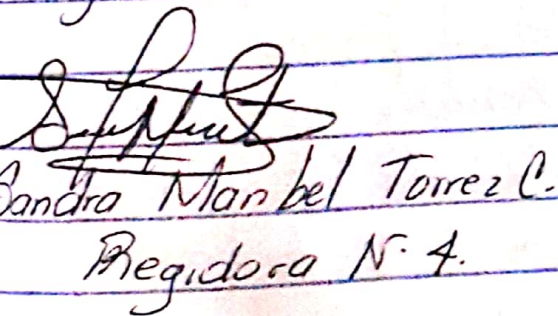 Sandra Maribel Torrez C.
Regidora N. 4.